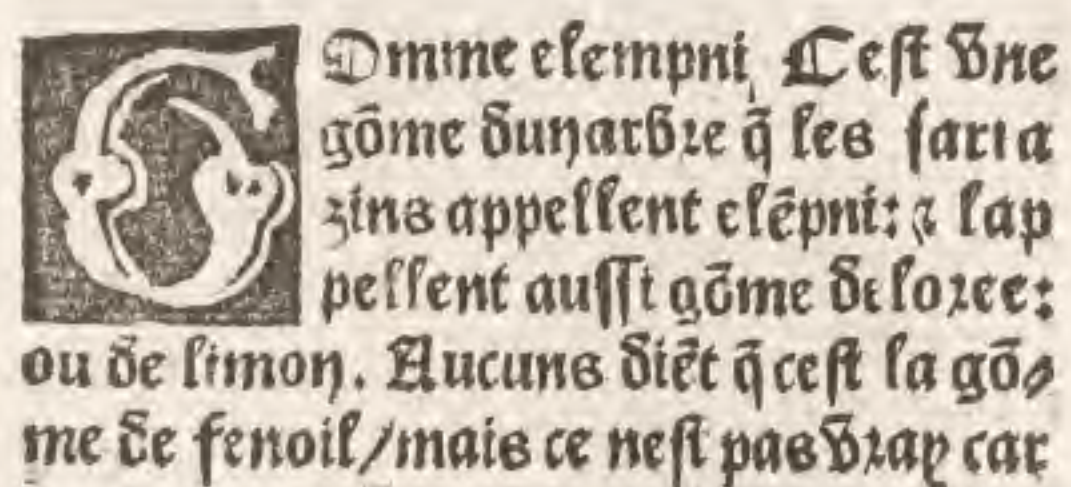 GOmme elempni, Cest vne
gõme dunarbre q̃ les sarra
zins appellent elẽpni: ⁊ lap
pellent aussi gõme de loree:
ou de limon. Aucuns diẽt q̃ cest la gõ⸗
me de fenoil/mais ce nest pas vray car